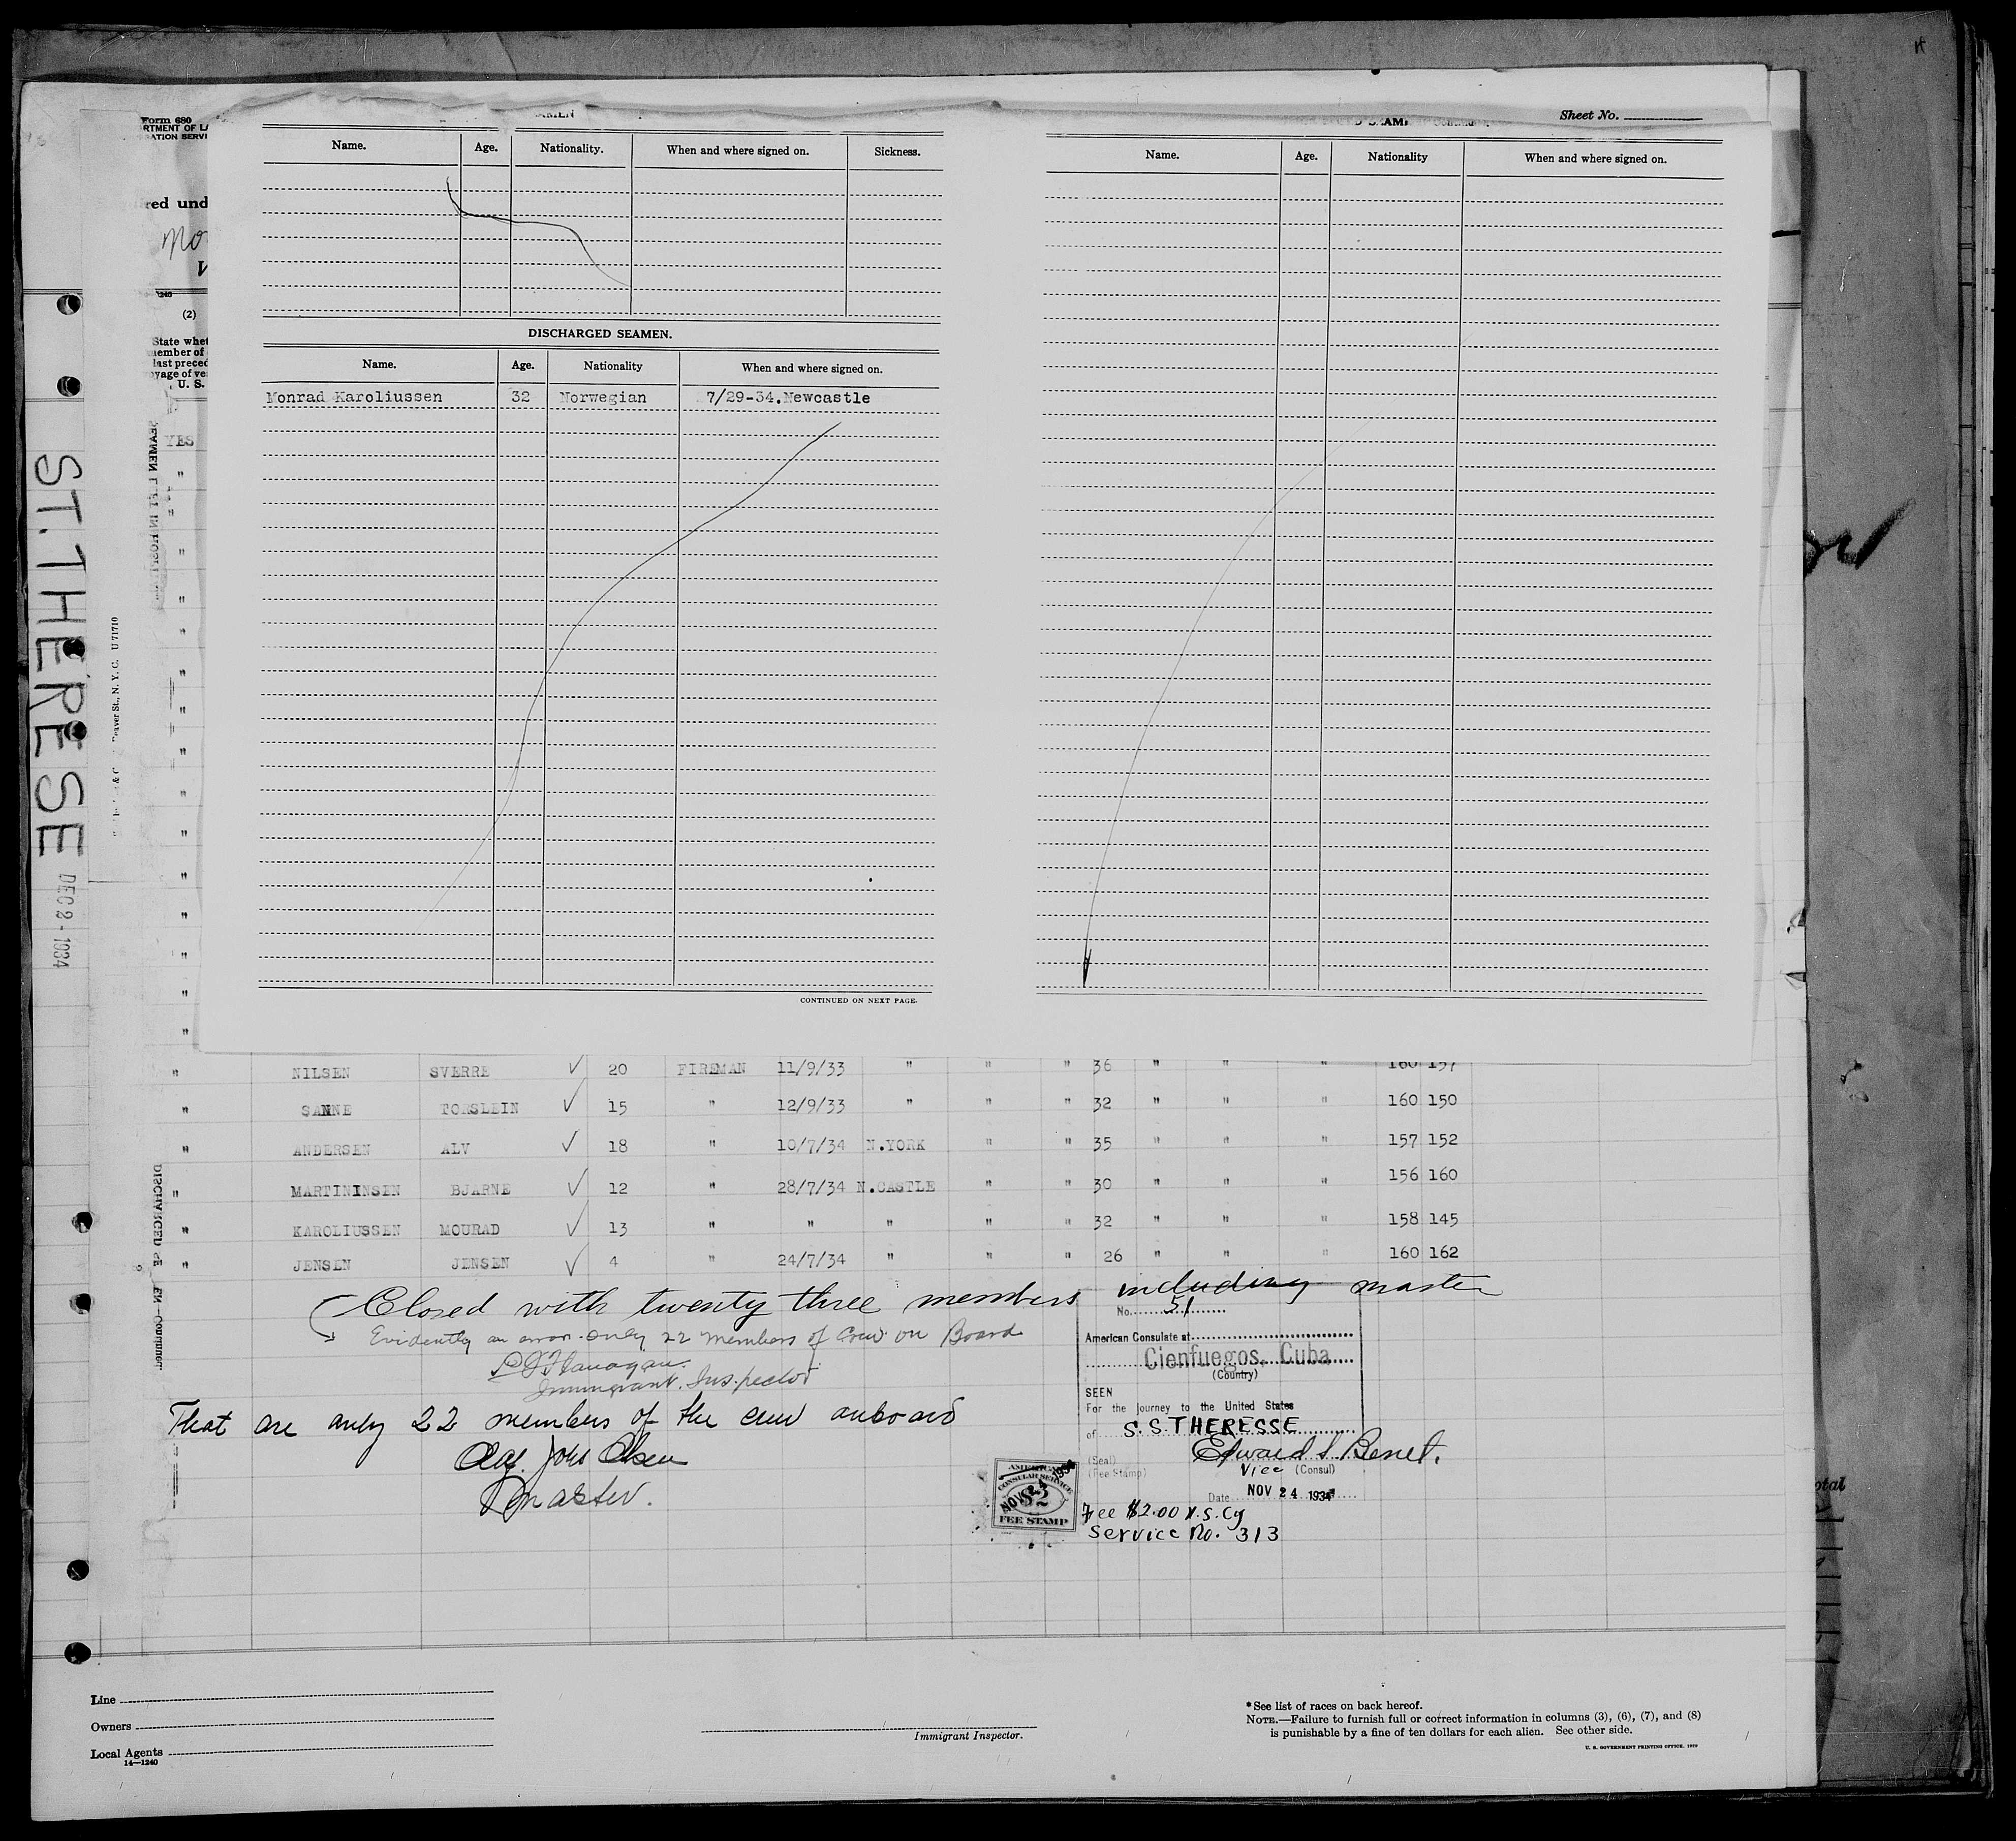 Form 680
RTMENT OF LA
ATION SERVI
red und
(2)
State whet
member of
last preced
yage of ve
U. S.
YES
ST. THERESE
DEC 2 - 1934
eaver St., N. Y. C. U 71710
Sheet No.
Name. Age. Nationality. When and where signed on. Sickness.
DISCHARGED SEAMEN.
Name. Age. Nationality When and where signed on.
Monrad Karoliussen 32 Norwegian 7/29-34.Newcastle
CONTINUED ON NEXT PAGE.
Name. Age. Nationality When and where signed on.
" NILSEN SVERRE ✓ 20 FIREMAN 11/9/33 " " " 36 " " " 160 157
" SANNE TORSLEIN ✓ 15 " 12/9/33 " " " 32 " " " 160 150
" ANDERSEN ALV ✓ 18 " 10/7/34 N.YORK " " 35 " " " 157 152
" MARTININSEN BJARNE ✓ 12 " 28/7/34 N.CASTLE " " 30 " " " 156 160
" KAROLIUSSEN MOURAD ✓ 13 " " " " " 32 " " " 158 145
" JENSEN JENSEN ✓ 4 " 24/7/34 " " " 26 " " " 160 162
Closed with twenty three members including master
Evidently an error. only 22 members of Crew on Board
Flanagan
Immigrant. Inspector
That are only 22 members of the crew onboard
John Olsen
Master.
No. 51
American Consulate at
Cienfuegos, Cuba
(Country)
SEEN
For the journey to the United States
of S.S. THERESSE
Edward S. Benet.
(Seal)
(Fee Stamp)
Vice (Consul)
Date NOV 24 1934
AMERICAN
CONSULAR SERVICE
NOV 24 1934
$2
FEE STAMP
Fee $2.00 U.S. Cy
Service No. 313
Line
Owners
Local Agents
14—1240
Immigrant Inspector.
*See list of races on back hereof.
NOTE.—Failure to furnish full or correct information in columns (3), (6), (7), and (8)
is punishable by a fine of ten dollars for each alien. See other side.
U. S. GOVERNMENT PRINTING OFFICE: 1929
otal